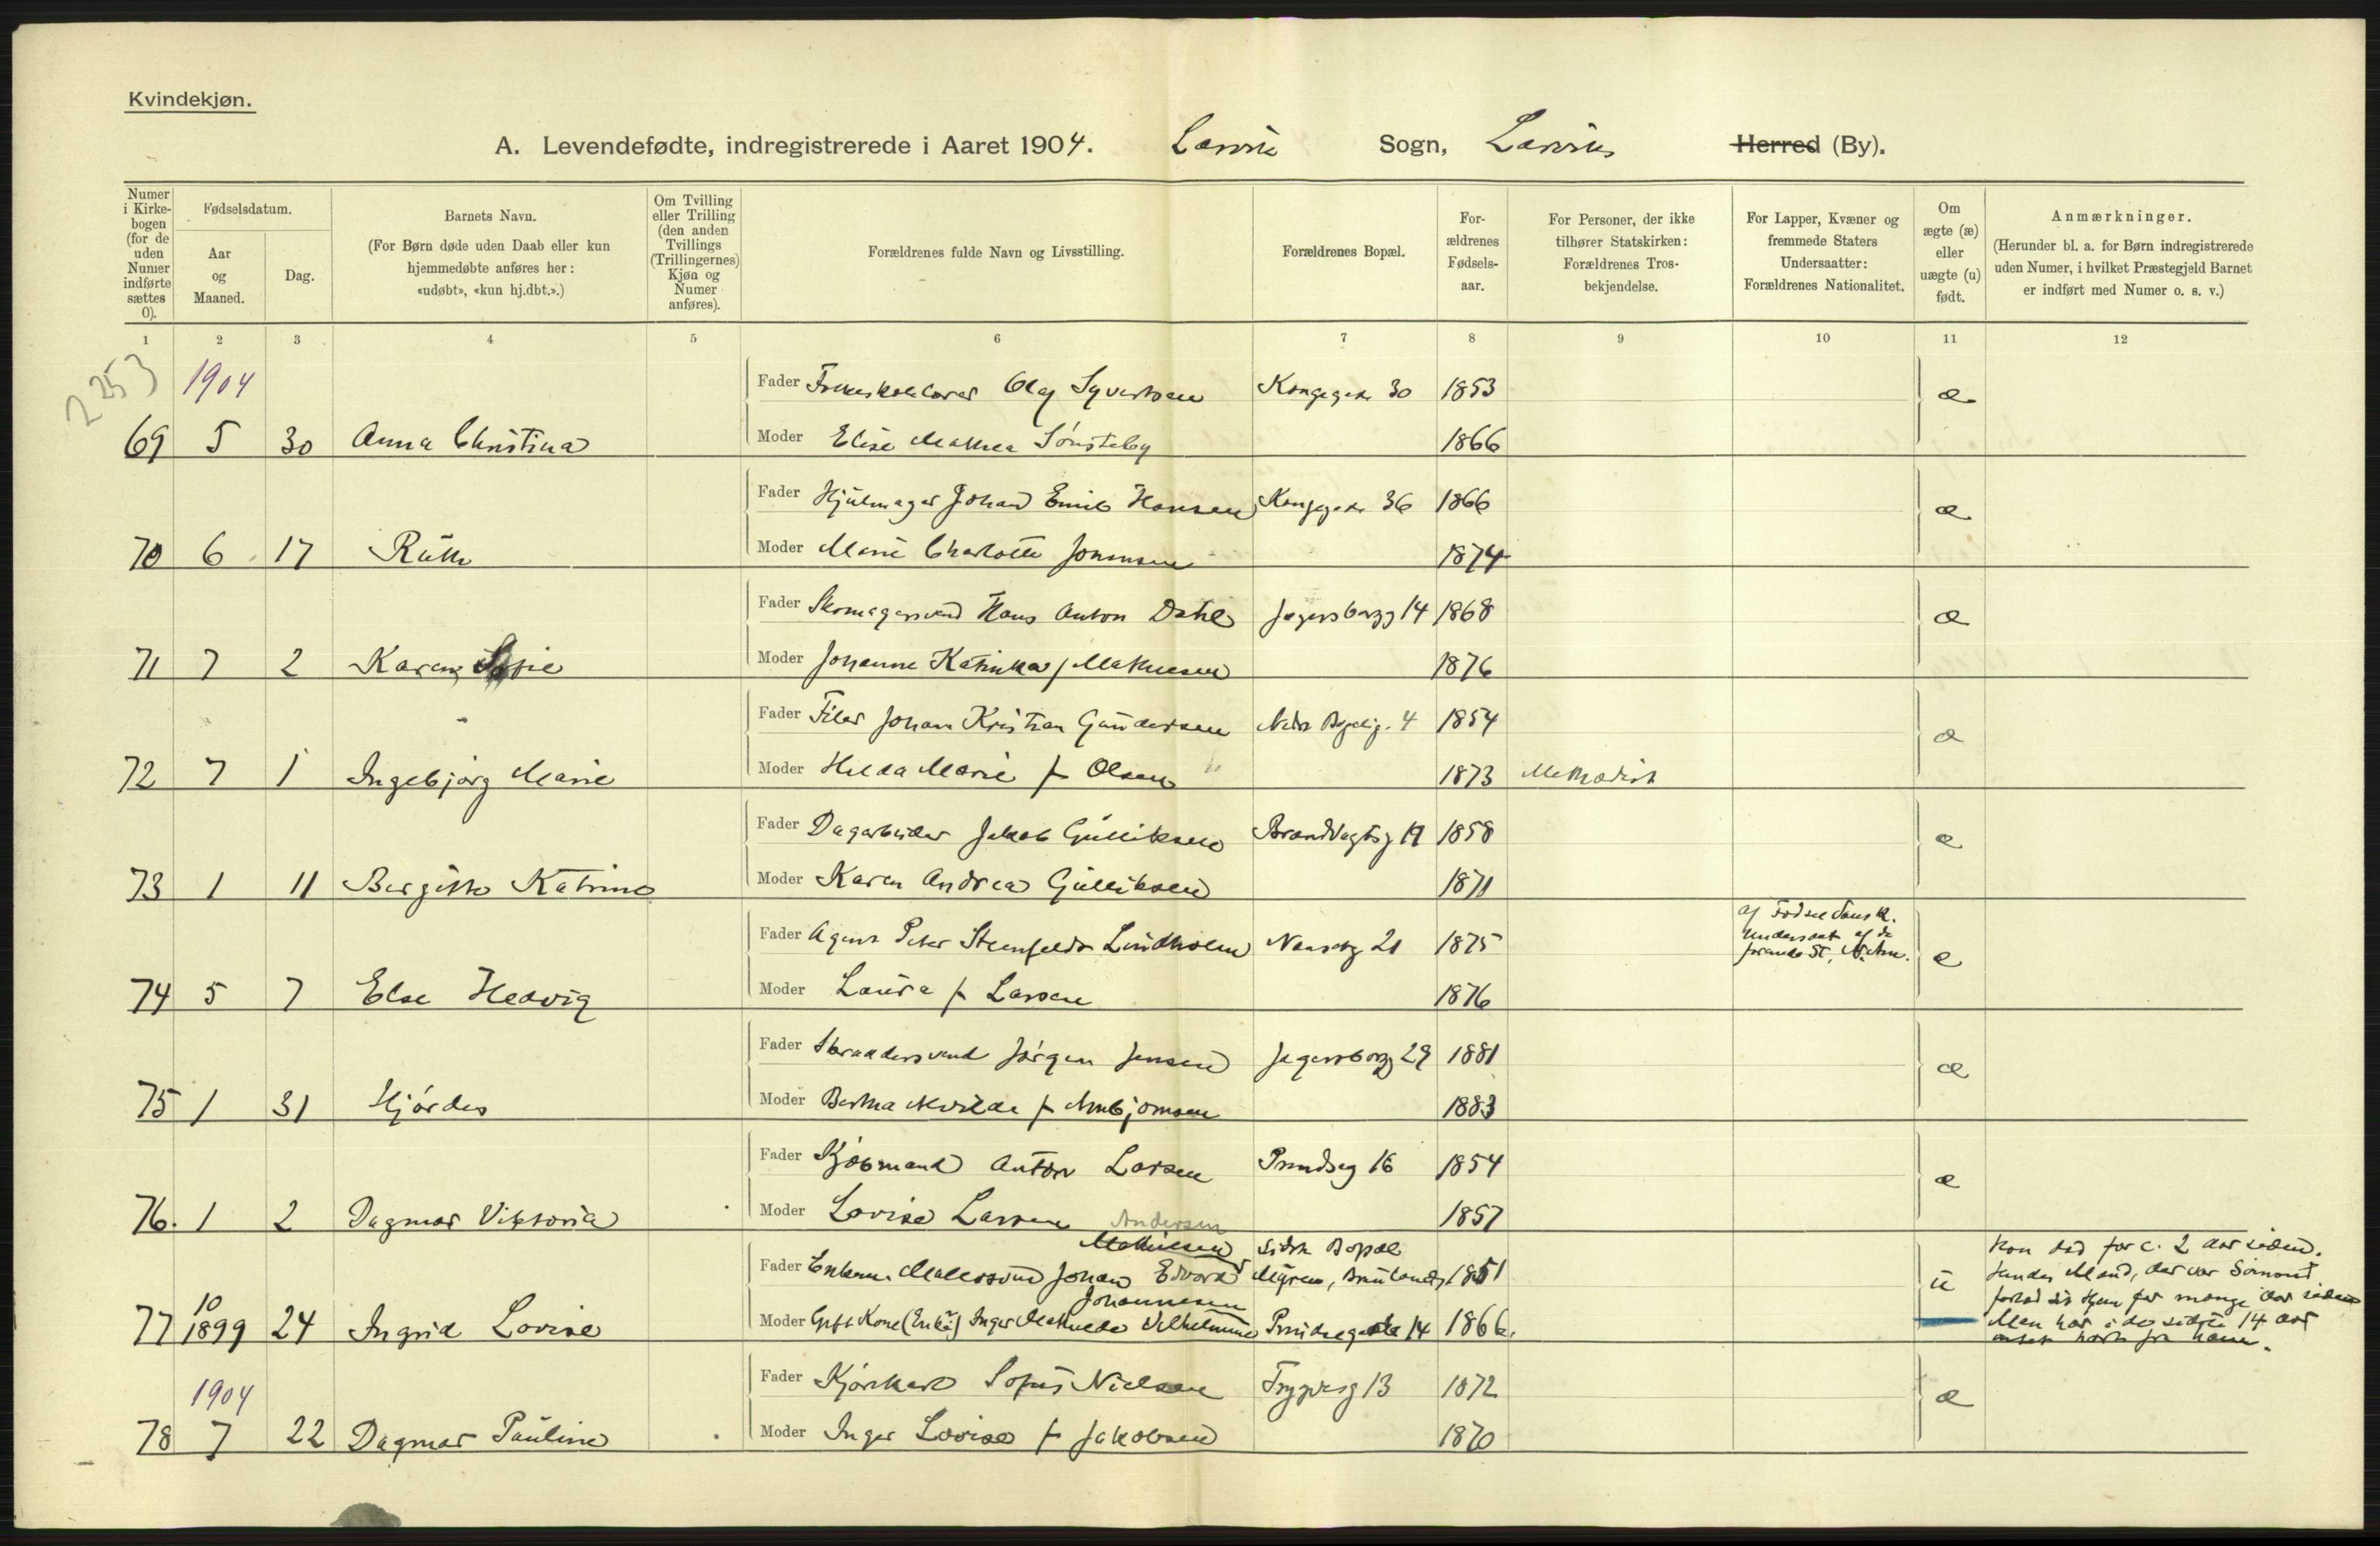 Kvindekjøn.
A. Levendefødte, indregistrerede i Aaret 1904. Larvik Sogn, Larviks Herred (By).
Numer i Kirkebogen (for de uden Numer indførte sættes 0).
Fødselsdatum.
Aar og Maaned.
Dag.
Barnets Navn.
(For Børn døde uden Daab eller kun hjemmedøbte anføres her: «udøbt», «kun hj.dbt.».)
Om Tvilling eller Trilling (den anden Tvillings (Trillingernes) Kjøn og Numer anføres).
Forældrenes fulde Navn og Livsstilling.
Forældrenes Bopæl.
Forældrenes Fødselsaar.
For Personer, der ikke tilhører Statskirken: Forældrenes Trosbekjendelse.
For Lapper, Kvæner og fremmede Staters Undersaatter: Forældrenes Nationalitet.
Om ægte (æ) eller uægte (u) født.
Anmærkninger.
(Herunder bl. a. for Børn indregistrerede uden Numer, i hvilket Præstegjeld Barnet er indført med Numer o. s. v.)
1 2 3 4 5 6 7 8 9 10 11 12
2253
1904
Fader Olaf Syvertsen Kongegt 30 1853 æ
69 5 30 Anna Christina Moder Elise Mathea Sønsteby 1866
Fader Hjulmager Johan Emil Hansen Kongegt 36 1866 æ
70 6 17 Ruth Moder Marie Charlotte Johnnsen 1874
Fader Skomagersvend Hans Anton Dahl Jegersborgg 14 1868 æ
71 7 2 Karen Sofie Moder Johanne Katinka f Mathiesen 1876
Fader Filer Johan Kristian Gundersen Nedre 4 1854 æ
72 7 1 Ingebjørg Marie Moder Hilda Marie f Olsen 1873 Methodist
Fader Dagarbeider Jakob Gulliksen Brandvagtsg 19 1858 æ
73 1 11 Birgitte Katrine Moder Karen Andrea Gulliksen 1871
Fader Agent Peter Steenfeldt Lindholm Nansetg 21 1875 af Fødsel Dansk. Undersaat af de forenede St. N. Am. æ
74 5 7 Else Hedvig Moder Laura f Larsen 1876
Fader Skræddersvend Jørgen Jensen Jegersborgg 29 1881 æ
75 1 31 Hjørdes Moder Bertha f Arnbjørnsen 1883
Fader Kjøbmand Anton Larsen Prindseg 16 1854 æ
76. 1 2 Dagmar Viktoria Moder Lovise Larsen 1857
Andersen
Mathiesen sidste Bopæl
Fader Enkem. Malersvend Johan Edvard 1851 u
Johannesen
77 10 1899 24 Ingrid Lovise Moder Gift Kone (Enke) Inger Mathilde Vilhelmine Prindsegade 14 1866.
Kon død for c. 2 Aar siden.
Hendes Mand, der var Sømand
forlod sit Hjem for mange Aar siden
Man har i de sidste 14 Aar
hørt fra ham.
1904
Fader Sofus Nielsen Trygvesg 13 1872 æ
78 7 22 Dagmar Pauline Moder Inger Lovise f Jakobsen 1870